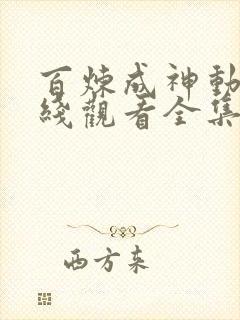 百炼成神動
綫觀看全集
西方来